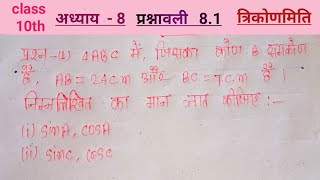 class
10th
अध्याय - 8 प्रश्नावली 8.1 त्रिकोणमिति
प्रश्न-(1) ΔABC में, जिसका कोण B समकोण
है, AB = 24cm और BC = 7cm है।
निम्नलिखित का मान ज्ञात कीजिए :-
(i) sinA, cosA
(ii) sinC, cosC